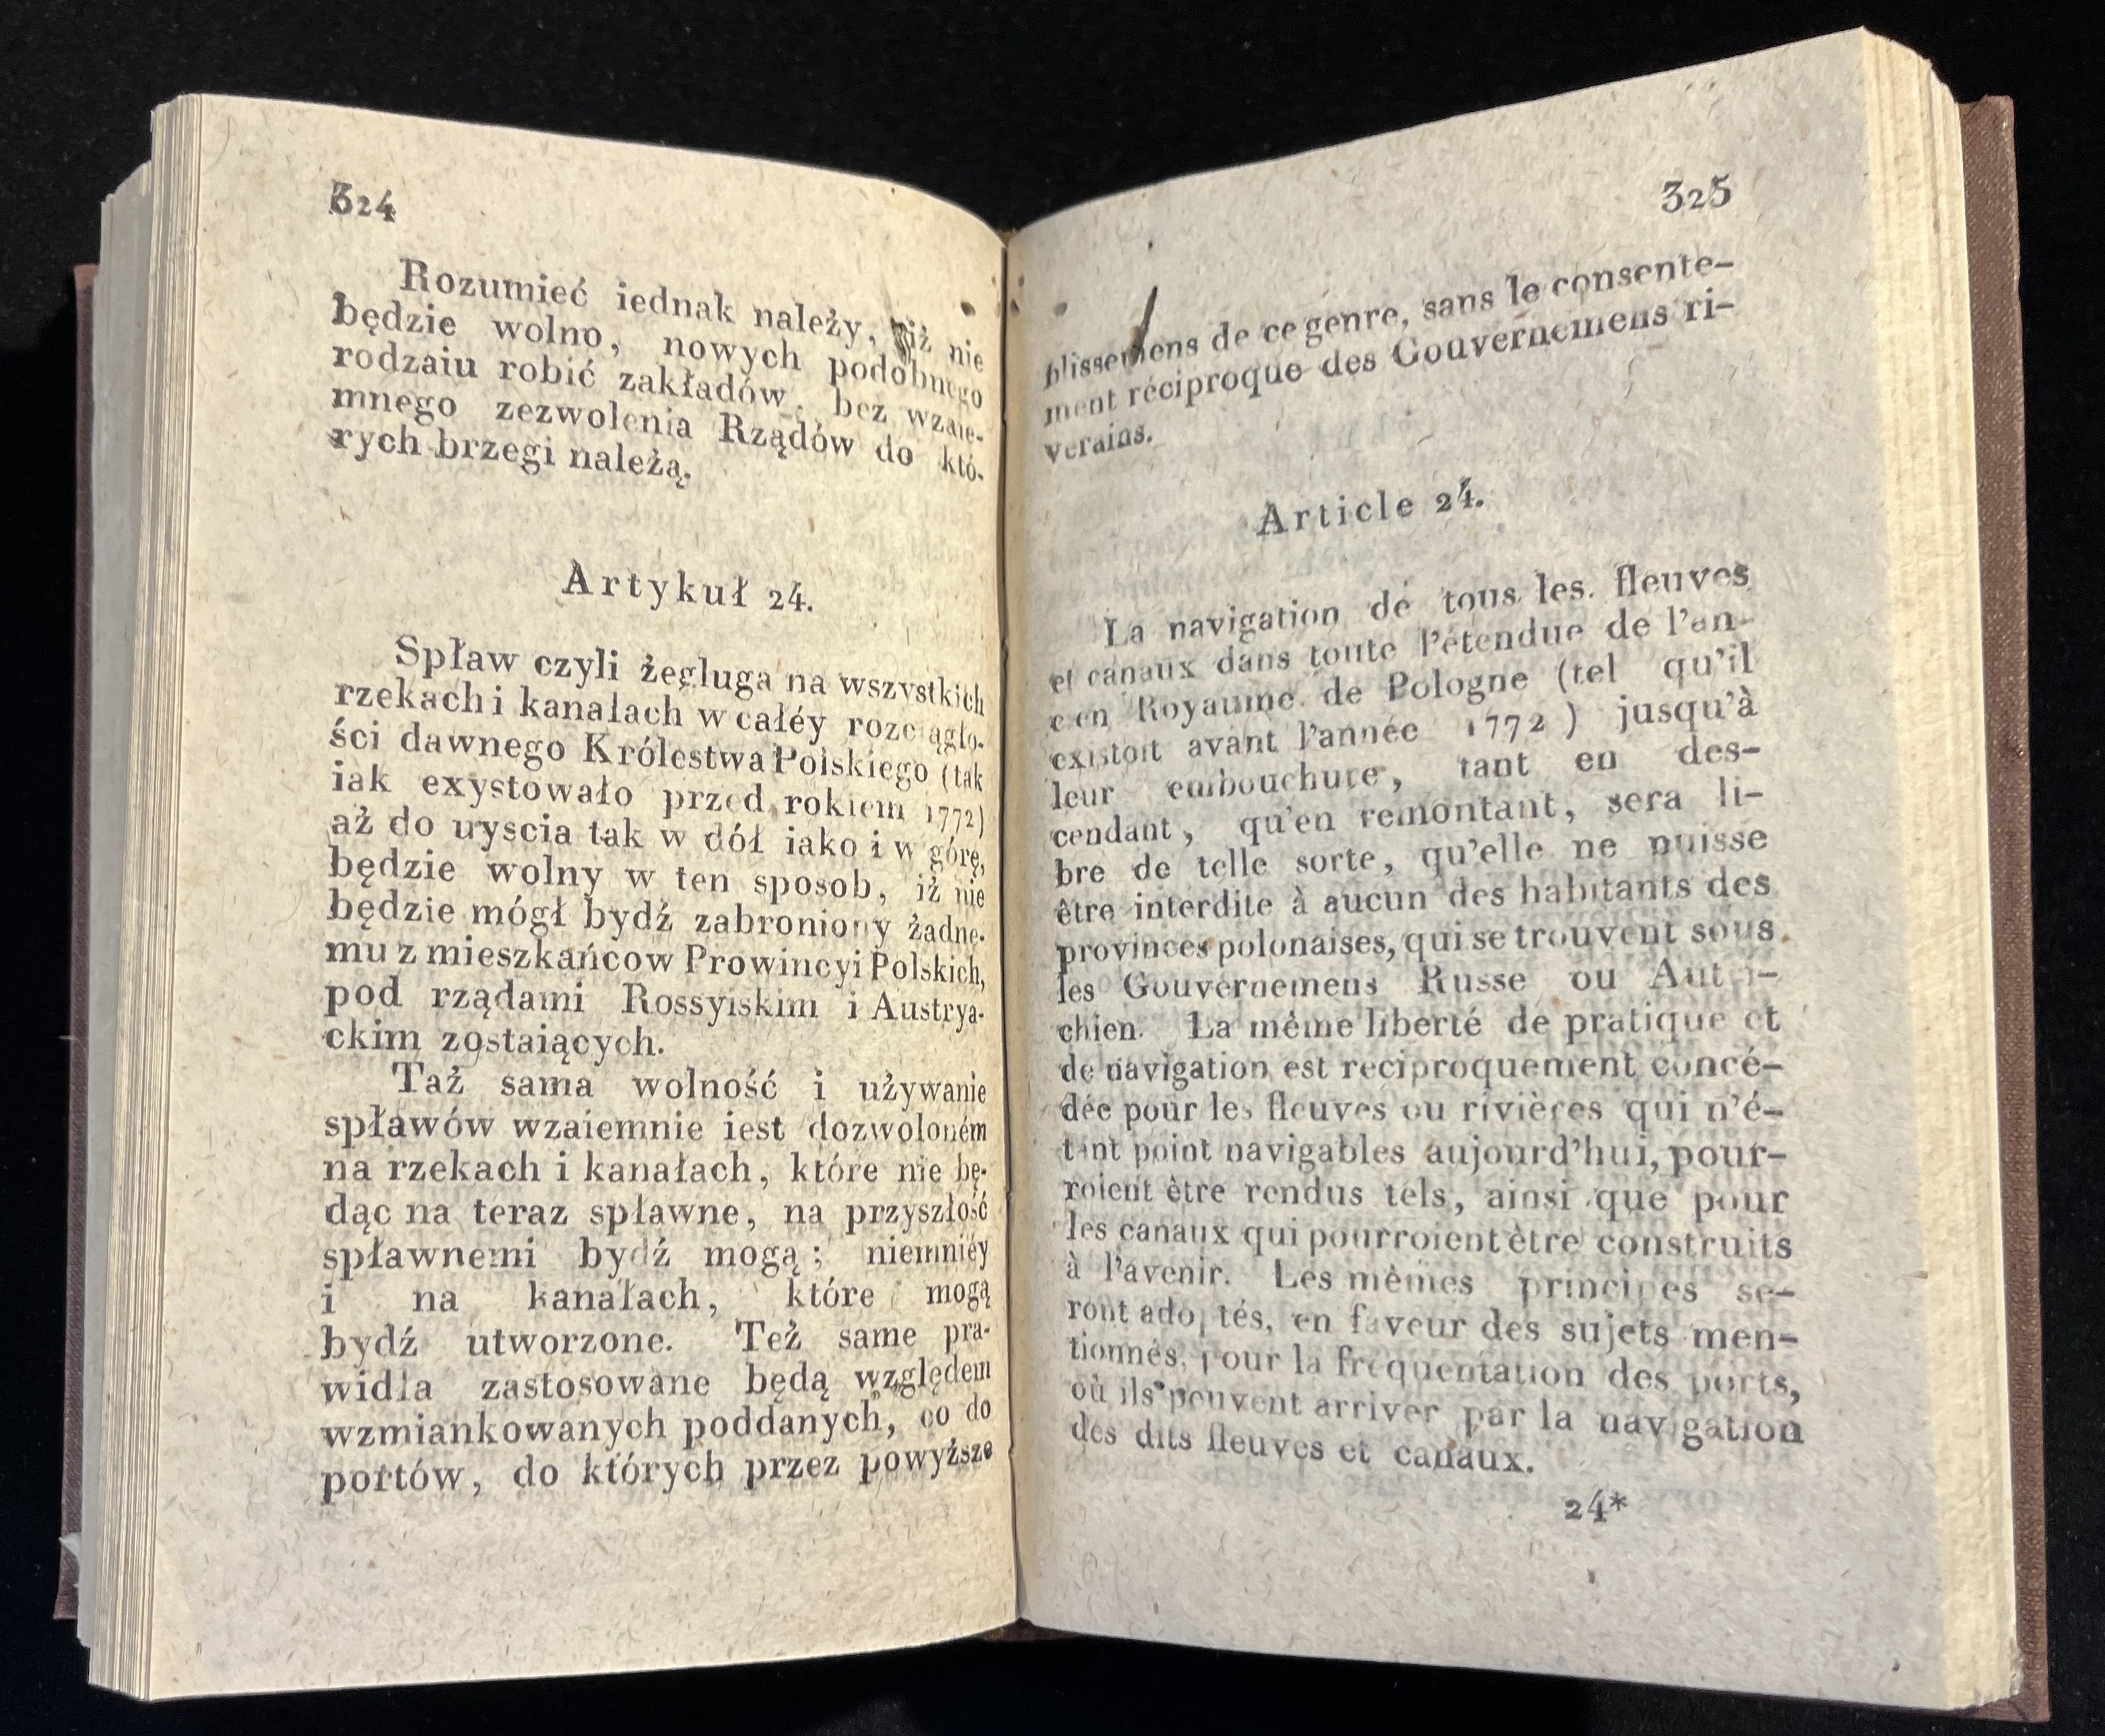 324
Rozumieć iednak należy, iż nie
będzie wolno, nowych podobnego
rodzaiu robić zakładów, bez wzaie-
mnego zezwolenia Rządów do któ-
rych brzegi należą.
Artykuł 24.
Spław czyli żegluga na wszystkich
rzekach i kanałach w całéy rozciągło-
ści dawnego Królestwa Polskiego (tak
iak exystowało przed rokiem 1772)
aż do uyscia tak w dół iako i w górę,
będzie wolny w ten sposob, iż nie
będzie mógł bydź zabroniony żadne-
mu z mieszkańcow Prowincyi Polskich,
pod rządami Rossyiskim i Austrya-
ckim zostaiących.
Taż sama wolność i używanie
spławów wzaiemnie iest dozwoloném
na rzekach i kanałach, które nie bę-
dąc na teraz spławne, na przyszłość
spławnemi bydź mogą; niemniéy
i na kanałach, które mogą
bydź utworzone. Też same pra-
widła zastosowane będą względem
wzmiankowanych poddanych, co do
portów, do których przez powyższe
325
blissemens de ce genre, sans le consente-
ment réciproque des Gouvernemens ri-
verains.
Article 24.
La navigation de tous les fleuves
et canaux dans toute l'étendue de l'an-
cien Royaume de Pologne (tel qu'il
existoit avant l'année 1772) jusqu'à
leur embouchure, tant en des-
cendant, qu'en remontant, sera li-
bre de telle sorte, qu'elle ne puisse
être interdite à aucun des habitants des
provinces polonaises, qui se trouvent sous
les Gouvernemens Russe ou Autri-
chien. La même liberté de pratique et
de navigation est reciproquement concé-
dée pour les fleuves ou rivières qui n'é-
tant point navigables aujourd'hui, pour-
roient être rendus tels, ainsi que pour
les canaux qui pourroient être construits
à l'avenir. Les mêmes principes se-
ront adoptés, en faveur des sujets men-
tionnés, pour la fréquentation des ports,
où ils peuvent arriver par la navigation
des dits fleuves et canaux.
24*